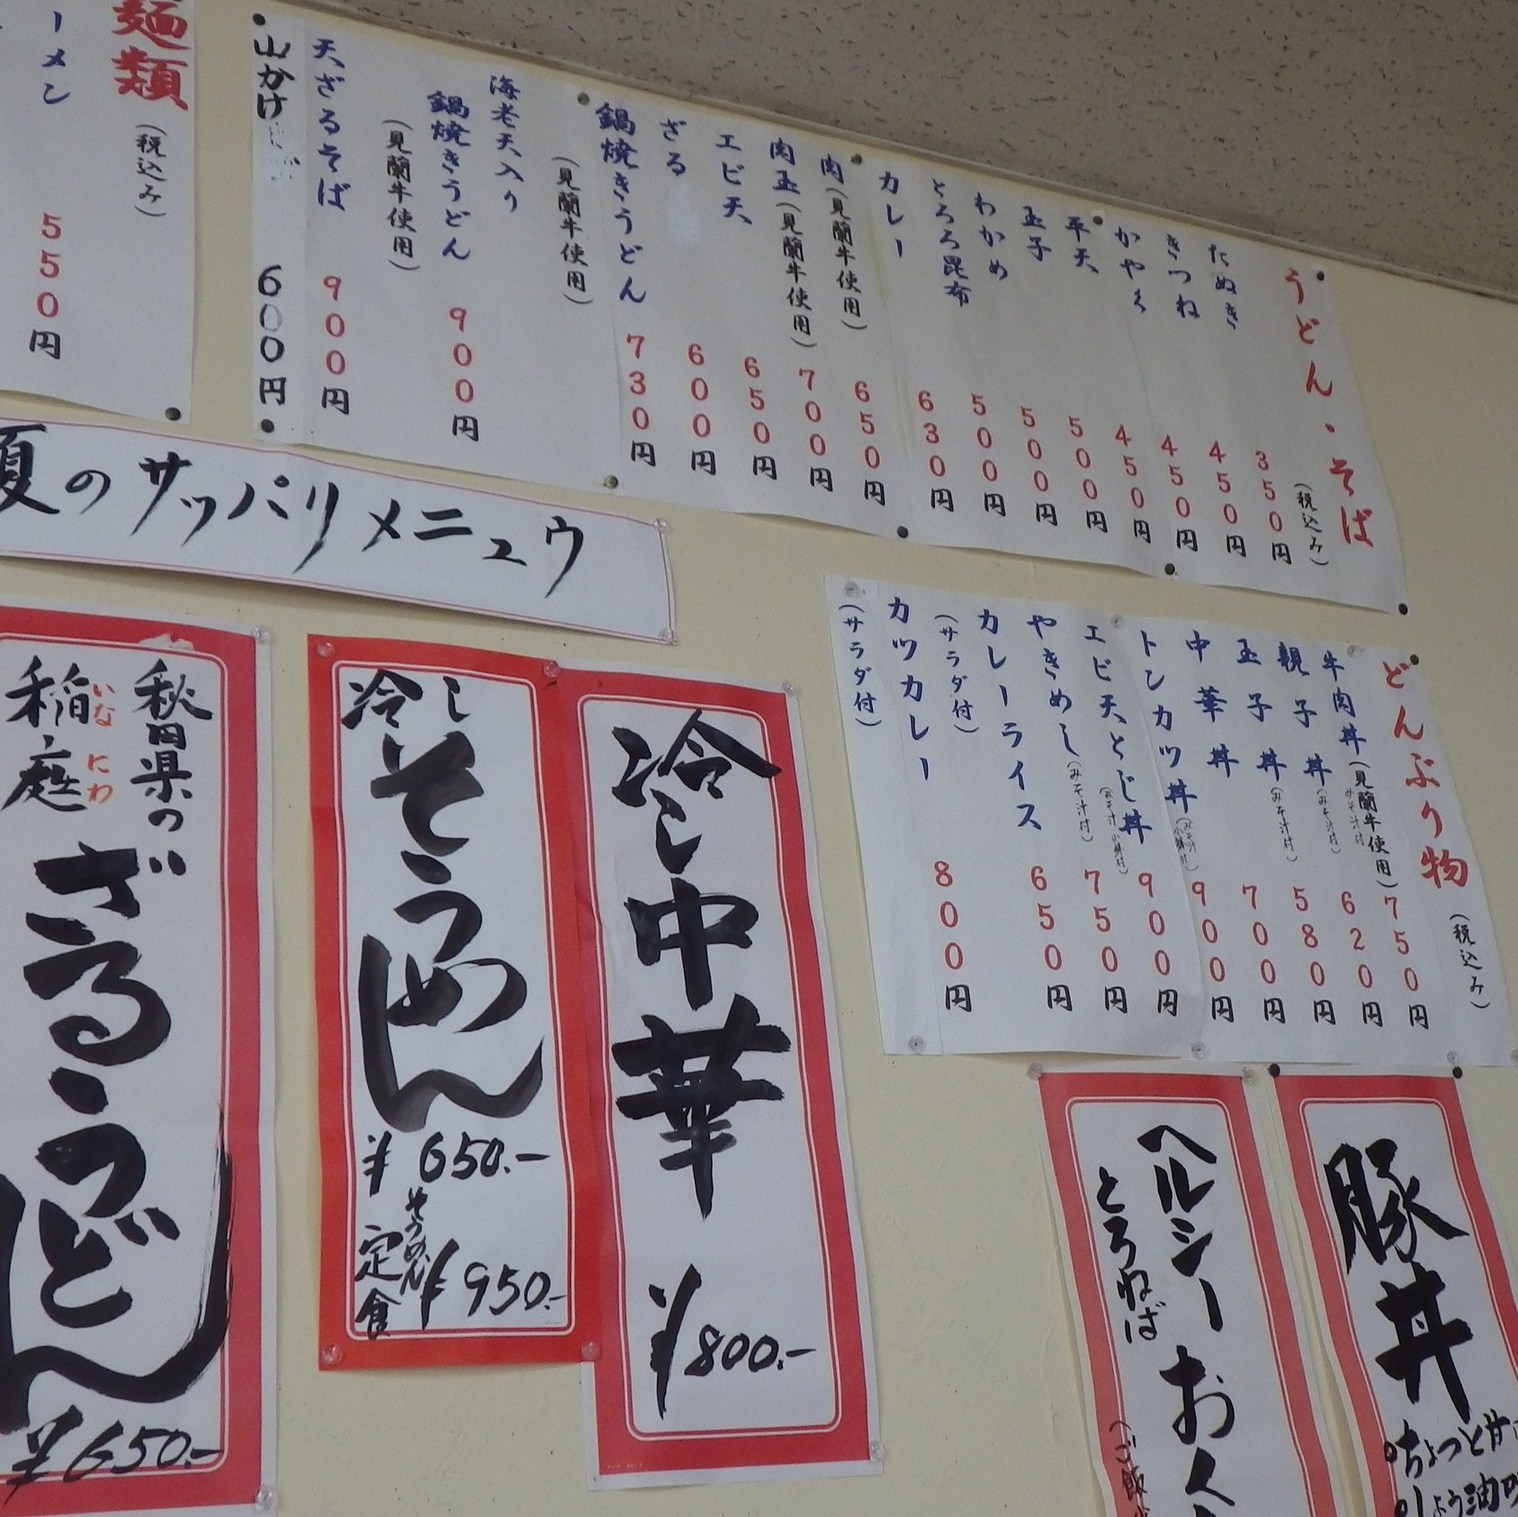 麺類
(税込み)
ーメン 550円
うどん・そば
(税込み)
たぬき 350円
きつね 450円
かやく 450円
平天 450円
玉子 500円
わかめ 500円
とろろ昆布 500円
カレー 630円
肉(見蘭牛使用) 650円
肉玉(見蘭牛使用) 700円
エビ天 650円
ざる 600円
鍋焼きうどん 730円
(見蘭牛使用)
海老天入り
鍋焼きうどん 900円
(見蘭牛使用)
天ざるそば 900円
山かけ 600円
夏のサッパリメニュウ
どんぶり物
(税込み)
牛肉丼(見蘭牛使用) 750円
みそ汁付
親子丼(みそ汁付) 620円
玉子丼(みそ汁付) 580円
中華丼 700円
トンカツ丼 900円
エビ天とじ丼 900円
やきめし(みそ汁付) 750円
カレーライス 650円
(サラダ付)
カツカレー 800円
(サラダ付)
冷し中華
¥800.-
冷し
そうめん
¥650.-
そうめん
定食 ¥950.-
秋田県の
稲庭
いなにわ
ざるうどん
¥650.-
豚丼
ちょっと甘
しょう油
ヘルシー
とろねば